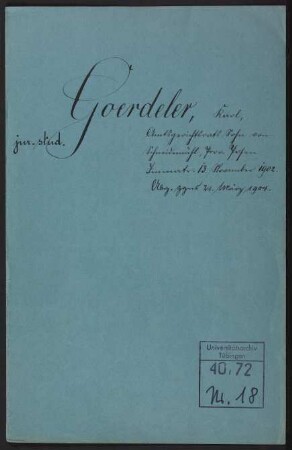 Goerdeler, Karl,
jur. stud.
Amtsgerichtsrats Sohn von
Schneidemühl, Prov. Posen
Immatr. 13. November 1902.
Abg. zgns 21. März 1904.
Universitätsarchiv
Tübingen
40/72
Nr. 18